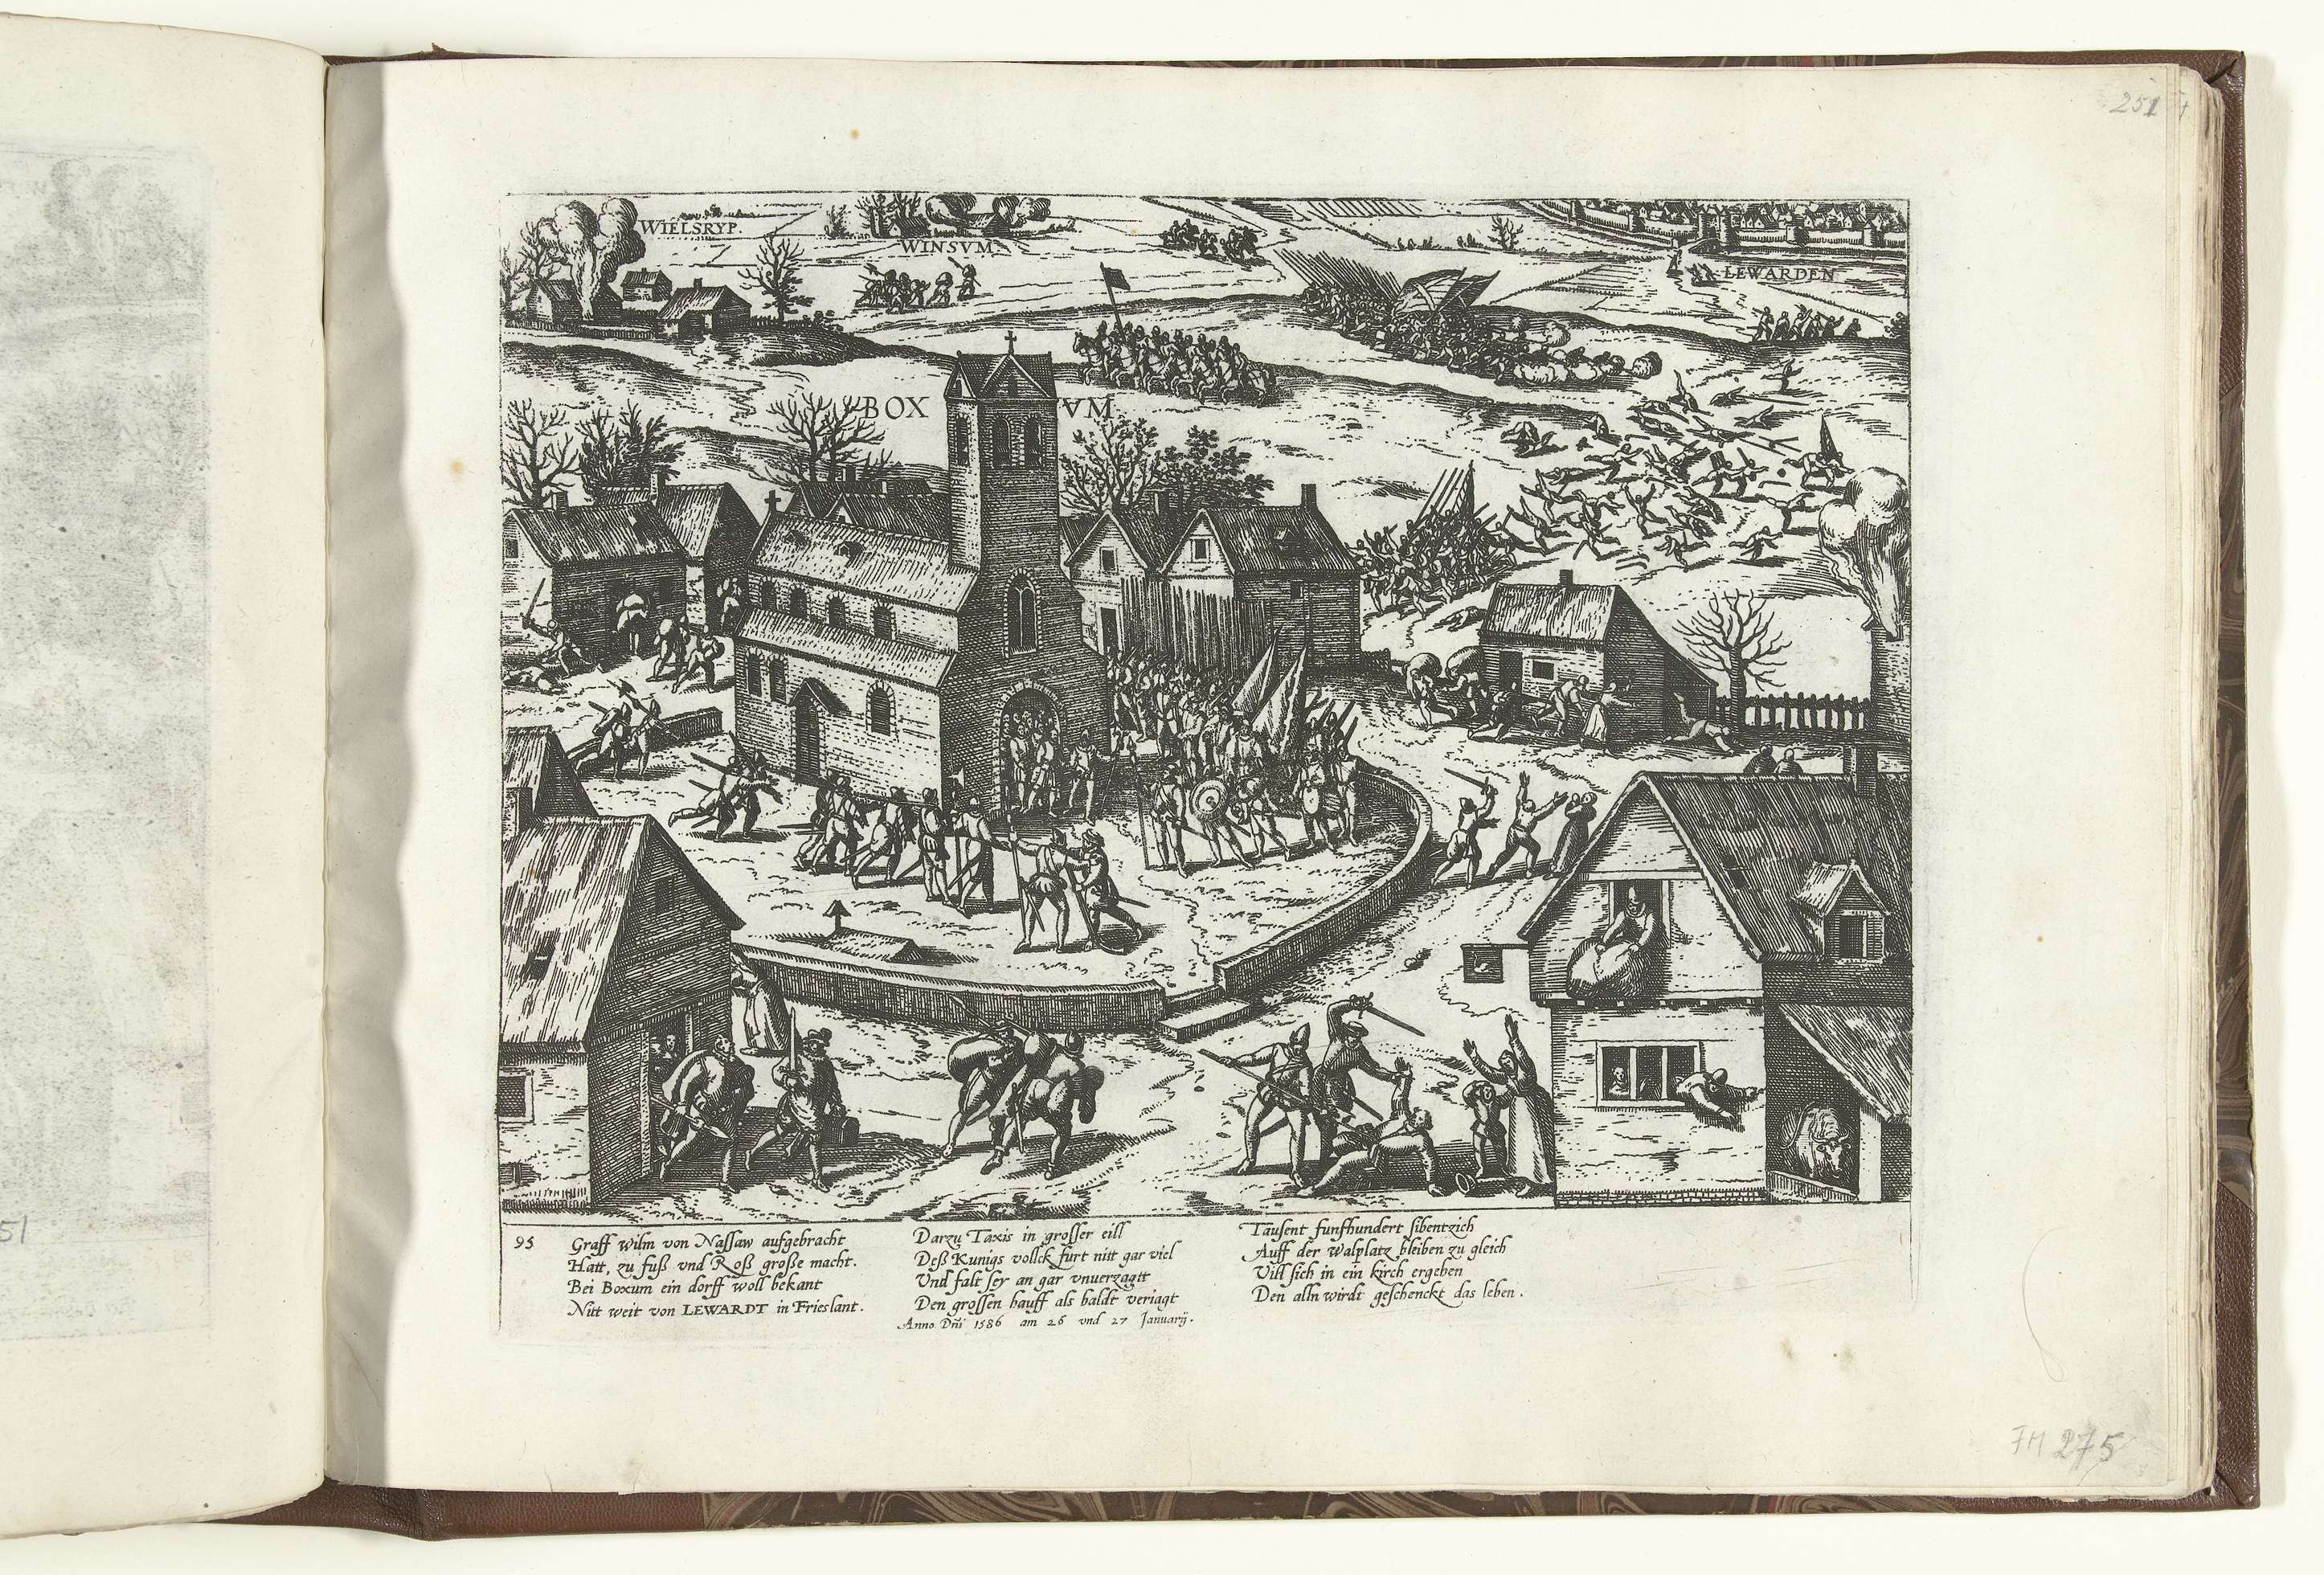 251
WIELSRYP.
WINSVM.
LEWARDEN
BOX VM
95
Graff wilm von Nassaw aufgebracht
Hatt, zu fuß vnd Roß große macht.
Bei Boxum ein dorff woll bekant
Nitt weit von LEWARDT in Frieslant.
Darzu Taxis in grosser eill
Deß Kunigs vollck furt nitt gar viel
Und falt sey an gar vnuerzagtt
Den grossen hauff als baldt veriagt
Tausent funfhundert sibentzich
Auff der walplatz bleiben zu gleich
Vill sich in ein kirch ergeben
Den alln wirdt geschenckt das leben.
Anno Dñi 1586 am 26 vnd 27 Januarij.
FM 275
51